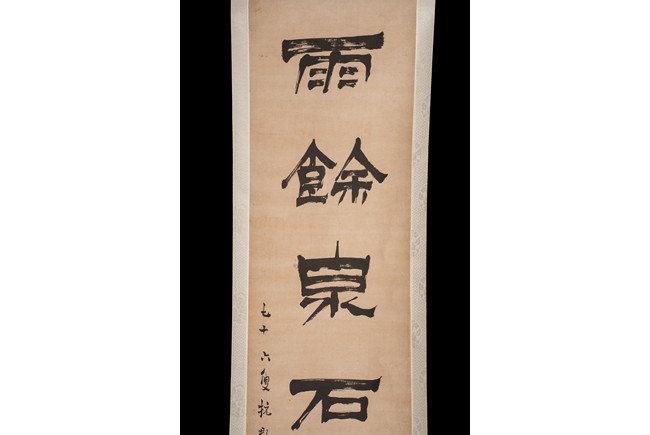 雨餘泉石
七十六叟杭